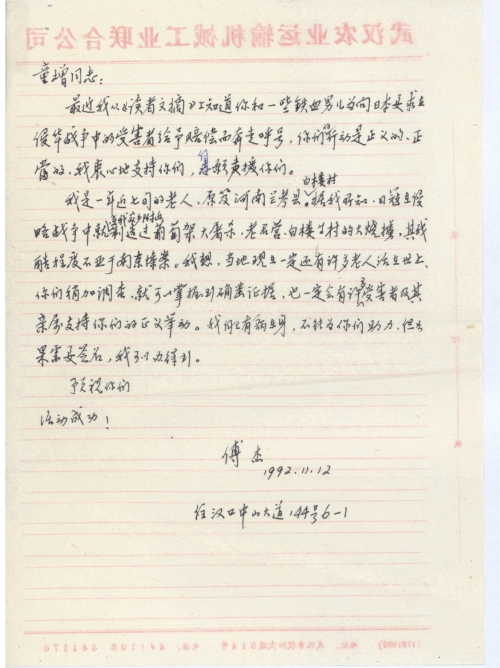 武汉农业运输机械工业联合公司
童增同志：
最近我从《读者文摘》上知道你和一些铁血男儿为向日本要求在
侵华战争中的受害者给予赔偿而奔走呼号，你们的行动是正义的、正
当的，我衷心地支持你们，声援你们。
我是一年近七旬的老人，原籍河南兰考县白楼村。据我所知，日寇在侵
略战争中就制造过葡萄架大屠杀，老君营、白楼等村的大烧掳，其残
酷程度不亚于南京惨案。我想，当地现在一定还有许多老人活在世上，
你们稍加调查，就可以掌握到确凿证据，也一定会有许多受害者及其
亲属支持你们的正义举动。我因有病在身，不能为你们助力，但如
果需要签名，我可以办得到。
预祝你们
活动成功！
傅杰
1992.11.12
住汉口中山大道144号6-1